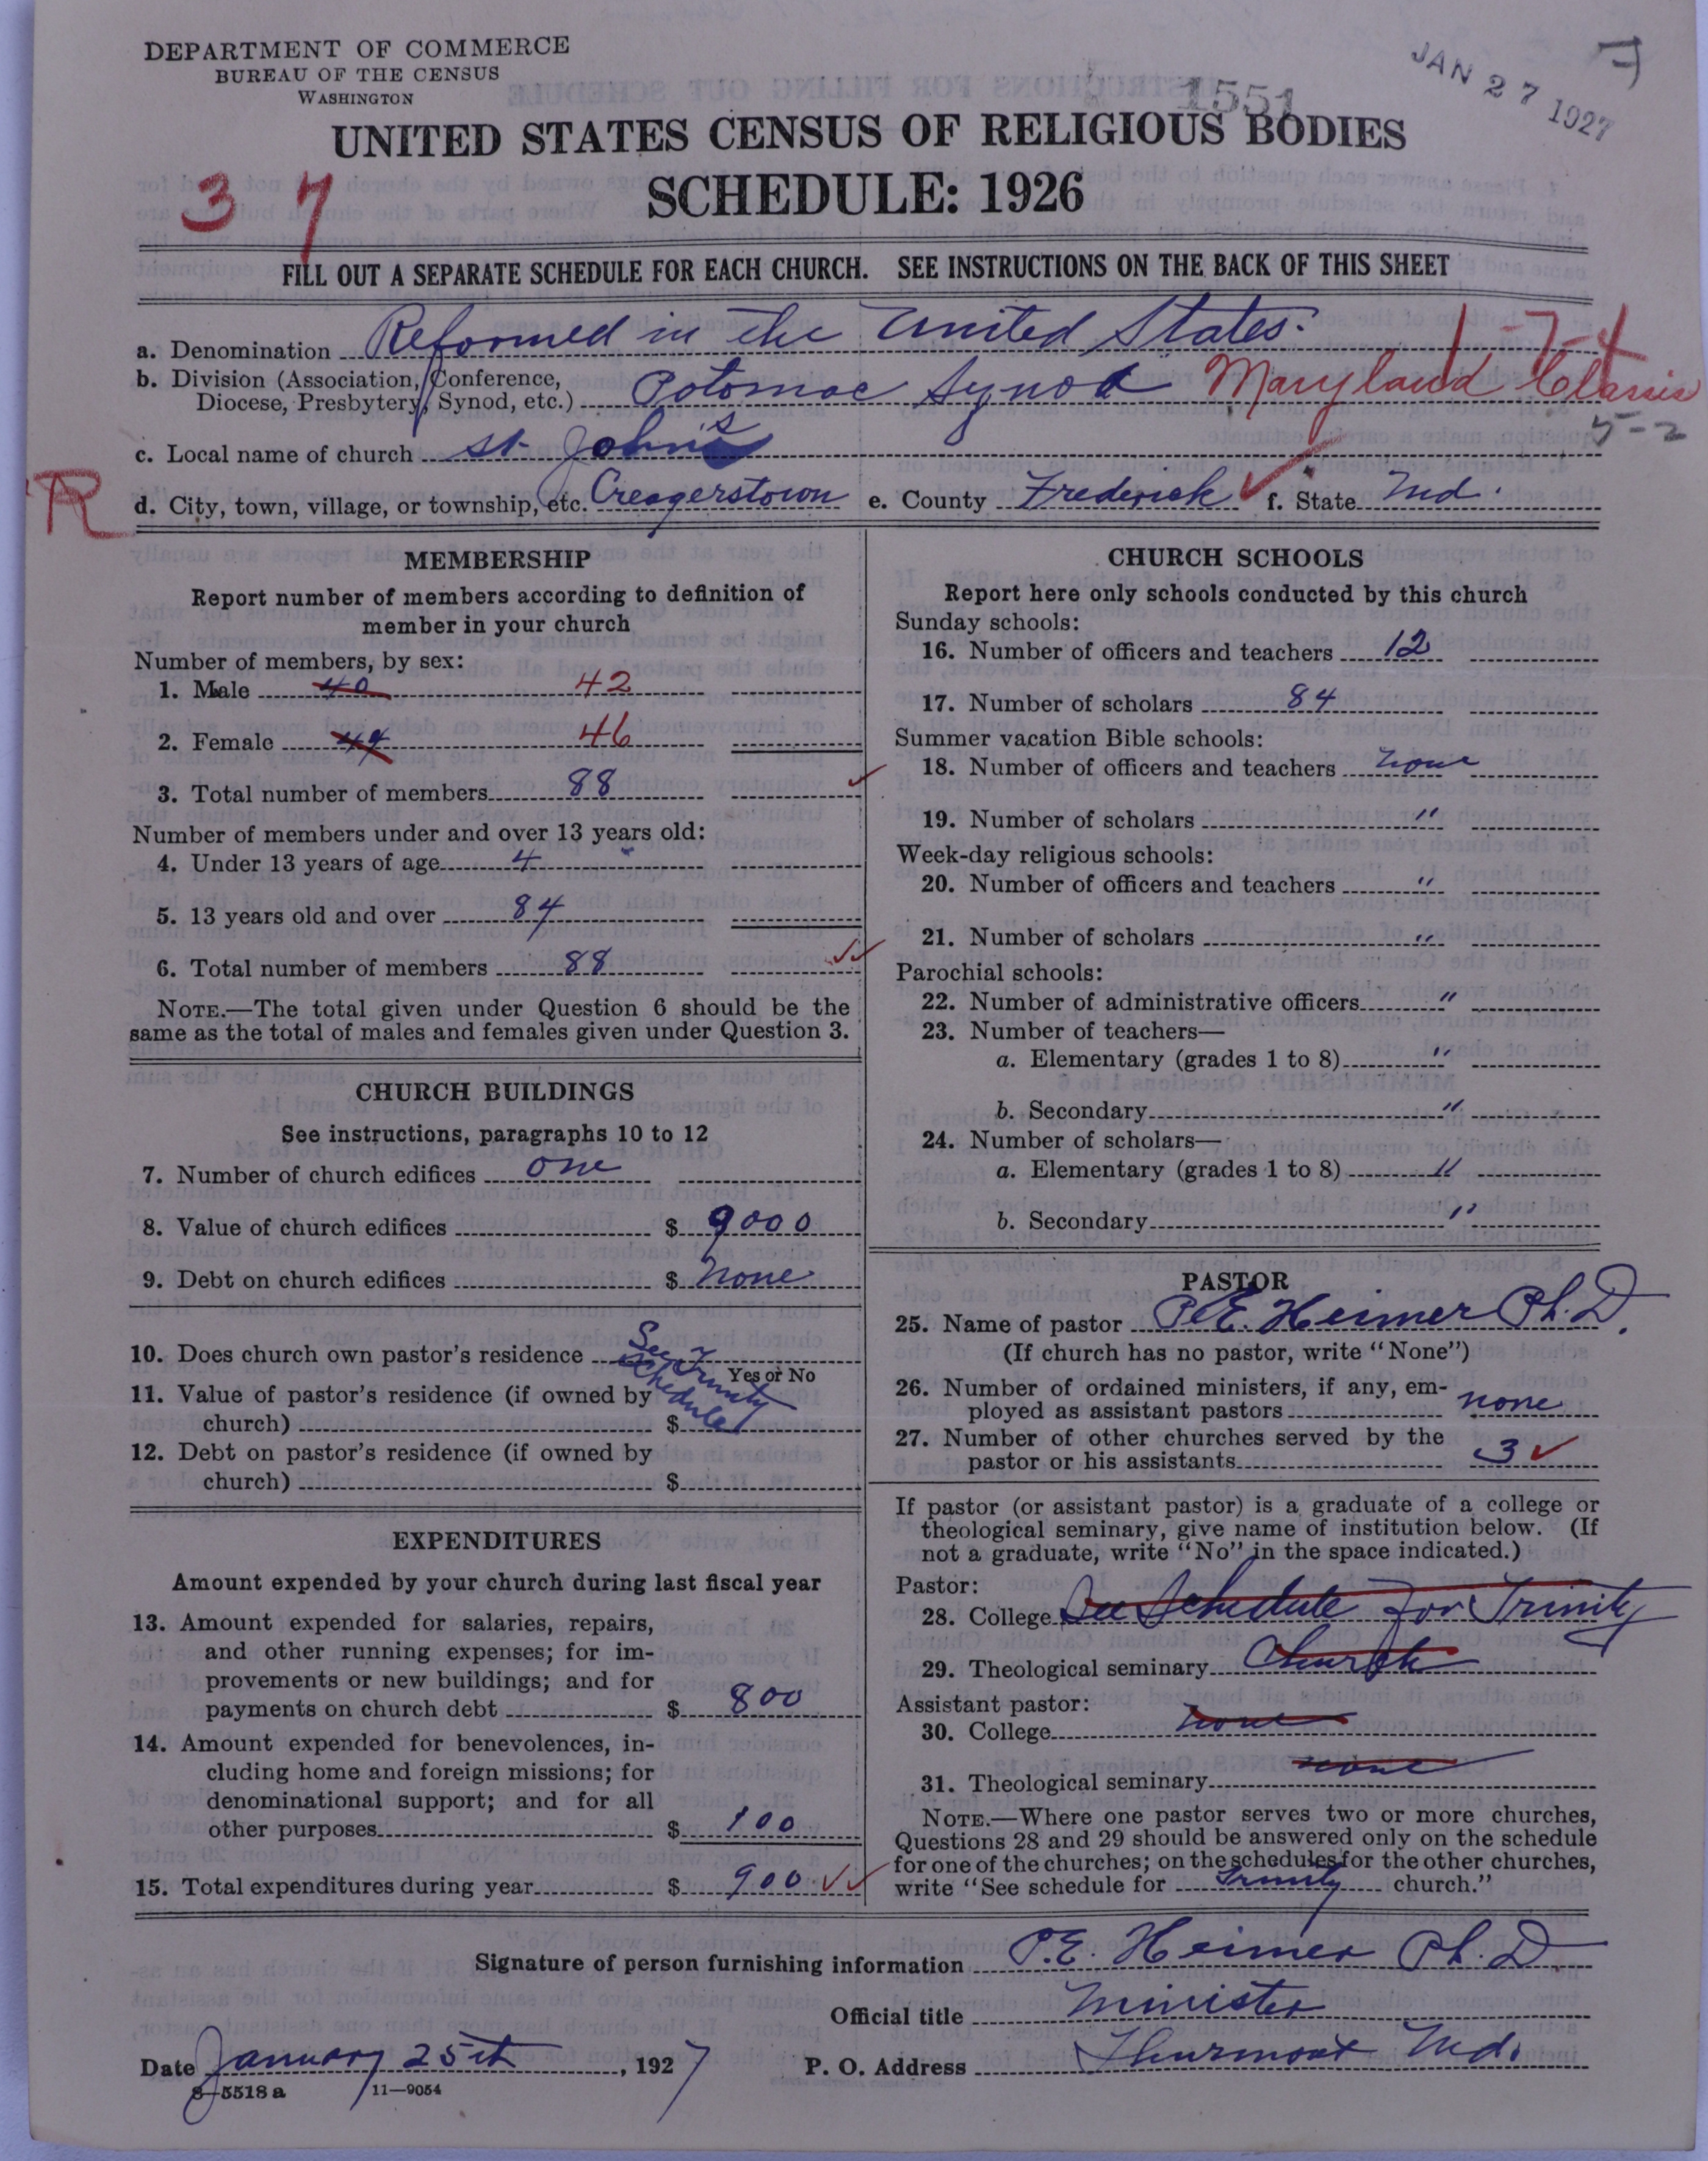 DEPARTMENT OF COMMERCE
BUREAU OF THE CENSUS
WASHINGTON
1551
JAN 27 1927
UNITED STATES CENSUS OF RELIGIOUS BODIES
SCHEDULE: 1926
37
FILL OUT A SEPARATE SCHEDULE FOR EACH CHURCH. SEE INSTRUCTIONS ON THE BACK OF THIS SHEET
1-7-4
a. Denomination Reformed in the United States.
b. Division (Association, Conference,
Diocese, Presbytery, Synod, etc.) Potomac Synod Maryland Classis
5-2
c. Local name of church St. John's
R
d. City, town, village, or township, etc. Creagerstown e. County Frederick f. State Md.
MEMBERSHIP
Report number of members according to definition of
member in your church
Number of members, by sex:
1. Male 40 42
2. Female 44 46
3. Total number of members 88
Number of members under and over 13 years old:
4. Under 13 years of age 4
5. 13 years old and over 84
6. Total number of members 88
NOTE.—The total given under Question 6 should be the
same as the total of males and females given under Question 3.
CHURCH BUILDINGS
See instructions, paragraphs 10 to 12
7. Number of church edifices one
8. Value of church edifices $ 9000
9. Debt on church edifices $ none
10. Does church own pastor's residence See Trinity Schedule
Yes or No
11. Value of pastor's residence (if owned by
church) $
12. Debt on pastor's residence (if owned by
church) $
EXPENDITURES
Amount expended by your church during last fiscal year
13. Amount expended for salaries, repairs,
and other running expenses; for im-
provements or new buildings; and for
payments on church debt $ 800
14. Amount expended for benevolences, in-
cluding home and foreign missions; for
denominational support; and for all
other purposes $ 100
15. Total expenditures during year $ 900
CHURCH SCHOOLS
Report here only schools conducted by this church
Sunday schools:
16. Number of officers and teachers 12
17. Number of scholars 84
Summer vacation Bible schools:
18. Number of officers and teachers none
19. Number of scholars "
Week-day religious schools:
20. Number of officers and teachers "
21. Number of scholars "
Parochial schools:
22. Number of administrative officers "
23. Number of teachers—
a. Elementary (grades 1 to 8) "
b. Secondary "
24. Number of scholars—
a. Elementary (grades 1 to 8) "
b. Secondary "
PASTOR
25. Name of pastor P.E. Heimer Ph.D.
(If church has no pastor, write "None")
26. Number of ordained ministers, if any, em-
ployed as assistant pastors none
27. Number of other churches served by the
pastor or his assistants 3
If pastor (or assistant pastor) is a graduate of a college or
theological seminary, give name of institution below. (If
not a graduate, write "No" in the space indicated.)
Pastor:
28. College See Schedule for Trinity
29. Theological seminary Church
Assistant pastor:
30. College none
31. Theological seminary none
NOTE.—Where one pastor serves two or more churches,
Questions 28 and 29 should be answered only on the schedule
for one of the churches; on the schedules for the other churches,
write "See schedule for Trinity church."
Signature of person furnishing information P.E. Heimer Ph.D.
Official title Minister
Date January 25th, 1927 P. O. Address Thurmont Md.
8-5518 a 11-9054